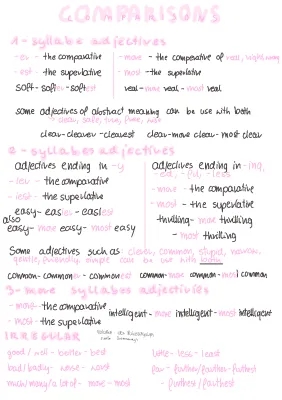 COMPARISONS
1 - syllabe adjectives
- er - the comparative
- est - the superlative
soft - softer - softest
- more - the comperative of real, right, wrong
- most - the superlative
real - more real - most real
some adjectives of abstract meaning can be use with both
clear, safe, true, free,
clear - clearer - clearest clear - more clear - most clear
2 - syllabes adjectives
adjectives ending in -y
- ier - the comparative
- iest - the superlative
easy - easier - easiest
also
easy - more easy - most easy
adjectives ending in -ing,
-ed, -ful, -less
- more - the comparative
- most - the superlative
thrilling - more thrilling
- most thrilling
Some adjectives such as: clever, common, stupid, narrow,
gentle, friendly, simple can be use with both
common - commoner - commonest common - more common - most common
3 - more syllabes adjectivies
- more - the comparative
- most - the superlative
intelligent - more intelligent - most intelligent
IRREGULAR
good / well - better - best
bad / badly - worse - worst
much / many / a lot of - more - most
little - less - least
far - farther / further - furthest
- furthest / farthest